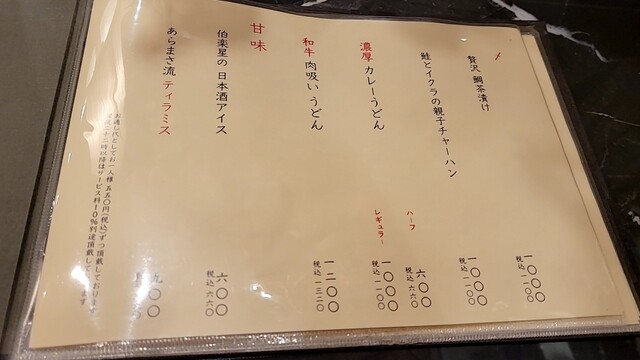 〆
贅沢 鯛茶漬け
一〇〇〇
税込 一一〇〇
鮭とイクラの親子チャーハン
一〇〇〇
税込 一一〇〇
濃厚 カレーうどん
ハーフ
六〇〇
税込 六六〇
レギュラー
一〇〇〇
税込 一一〇〇
和牛 肉吸い うどん
一二〇〇
税込 一三二〇
甘味
伯楽星の 日本酒アイス
六〇〇
税込 六六〇
あらまさ流 ティラミス
九〇〇
お通し代としてお一人様 五五〇円(税込)ずつ頂戴しております
二十二時以降はサービス料10%別途頂戴しております